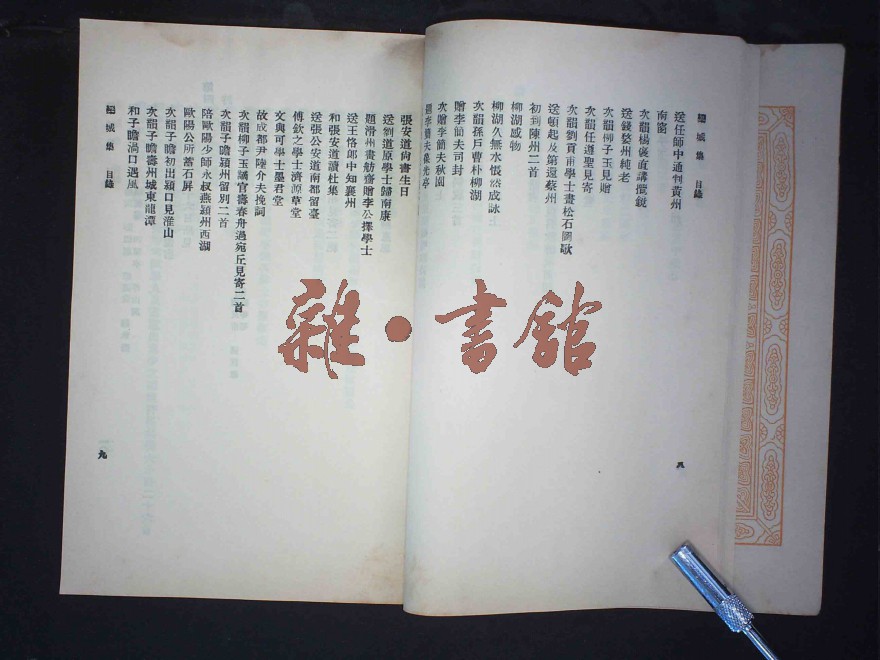 欒城集 目錄
送任師中通判黃州
南窗
次韻楊褒直講攬鏡
送錢婺州純老
次韻柳子玉見贈
次韻任遵聖見寄
次韻劉貢甫學士畫松石圖歌
送頓起及第還蔡州
初到陳州二首
柳湖感物
柳湖久無水悵然成詠
次韻孫戶曹朴柳湖
贈李簡夫司封
次韻李簡夫秋園
題李簡夫葆光亭
八
張安道尚書生日
送劉道原學士歸南康
題滑州畫舫齋贈李公擇學士
送王恪郎中知襄州
和張安道讀杜集
送張公安道南都留臺
傅欽之學士濟源草堂
文與可學士墨君堂
故成都尹陸介夫挽詞
次韻柳子玉謫官壽春舟過宛丘見寄二首
次韻子瞻潁州留別二首
陪歐陽少師永叔燕潁州西湖
歐陽公所蓄石屏
次韻子瞻初出潁口見淮山
次韻子瞻壽州城東龍潭
和子瞻渦口遇風
欒城集 目錄
九
雜·書館